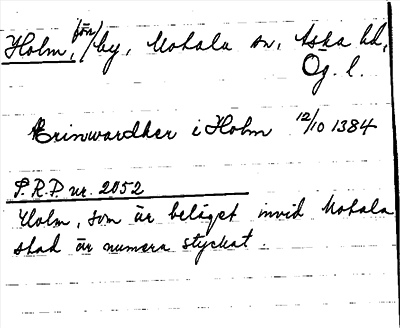 Holm, (förr) by, Motala sn, Aska hd,
Ög. l.
Brinwardher i Holm 12/10 1384
S.R.P. nr. 2052
Holm, som är beläget invid Motala
stad är numera styckat.